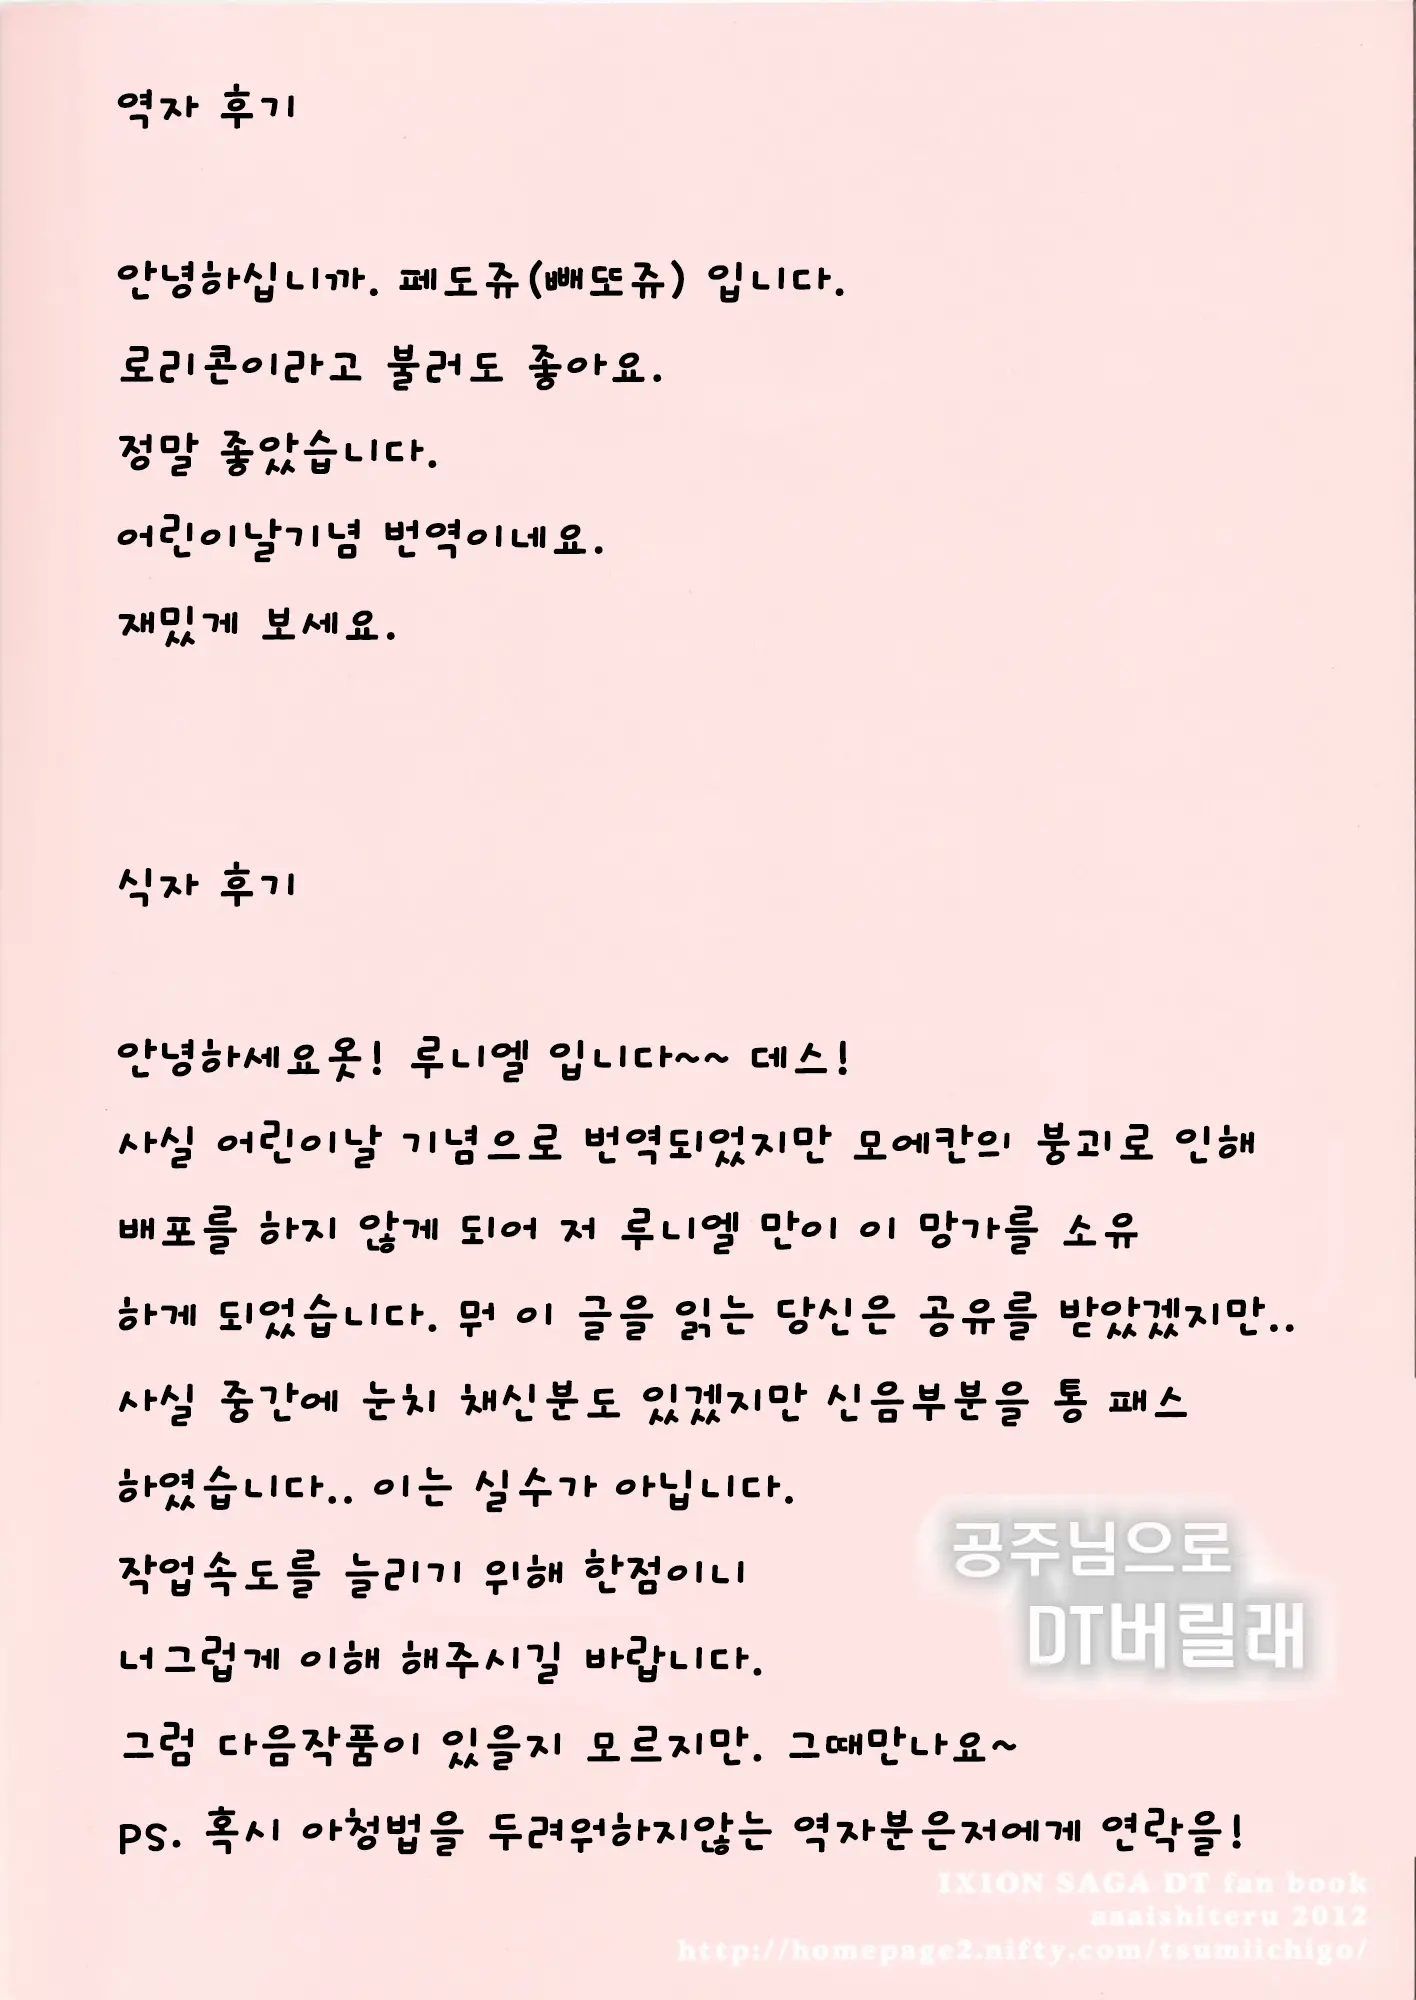 역자 후기
안녕하십니까. 페도쥬(빼또쥬) 입니다.
로리콘이라고 불러도 좋아요.
정말 좋았습니다.
어린이날기념 번역이네요.
재밌게 보세요.
식자 후기
안녕하세요옷! 루니엘 입니다~~ 데스!
사실 어린이날 기념으로 번역되었지만 모에칸의 붕괴로 인해
배포를 하지 않게 되어 저 루니엘 만이 이 망가를 소유
하게 되었습니다. 뭐 이 글을 읽는 당신은 공유를 받았겠지만..
사실 중간에 눈치 채신분도 있겠지만 신음부분을 통 패스
하였습니다.. 이는 실수가 아닙니다.
작업속도를 늘리기 위해 한점이니
너그럽게 이해 해주시길 바랍니다.
그럼 다음작품이 있을지 모르지만. 그때만나요~
PS. 혹시 아청법을 두려워하지않는 역자분은저에게 연락을!
공주님으로
DT버릴래
IXION SAGA DT fan book
aaaishiteru 2012
http://homepage2.nifty.com/tsumiichigo/